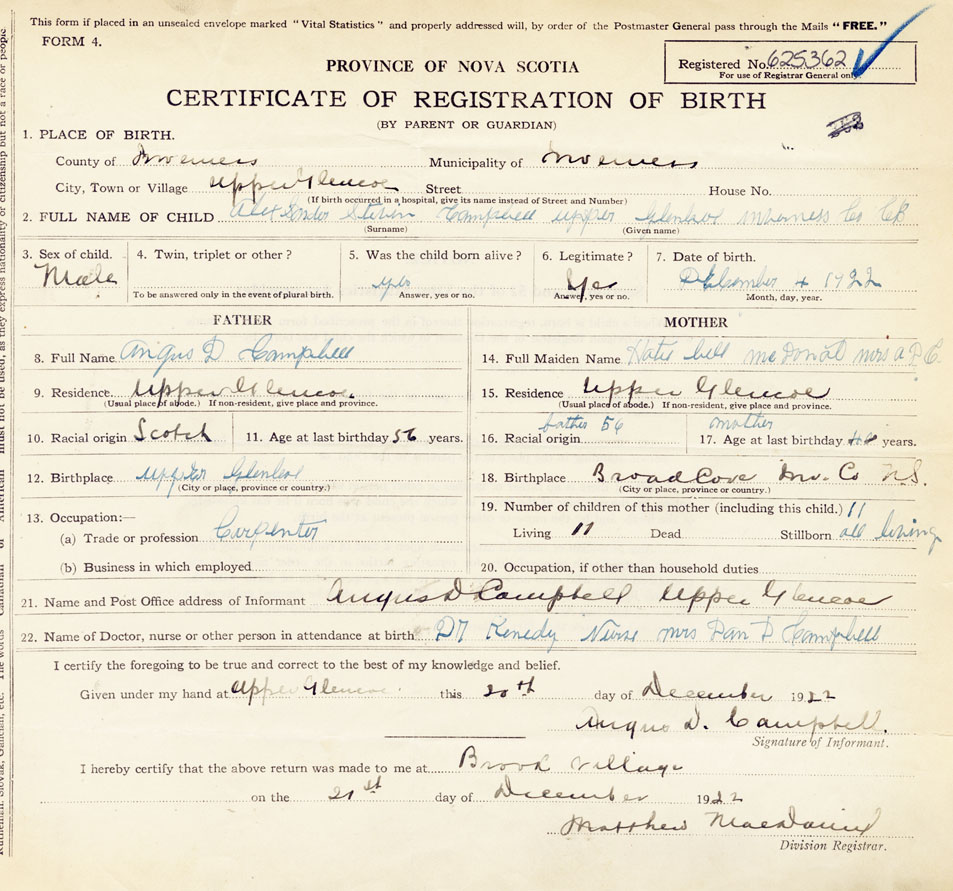 This form if placed in an unsealed envelope marked "Vital Statistics" and properly addressed will, by order of the Postmaster General pass through the Mails "FREE."
FORM 4.
Registered No. 625362
For use of Registrar General only
PROVINCE OF NOVA SCOTIA
CERTIFICATE OF REGISTRATION OF BIRTH
(BY PARENT OR GUARDIAN)
1. PLACE OF BIRTH.
County of Inverness Municipality of Inverness
City, Town or Village Upper Glencoe Street House No.
(If birth occurred in a hospital, give its name instead of Street and Number)
2. FULL NAME OF CHILD Alex Sander Steven Campbell upper Glencoe inverness Co CB
(Surname) (Given name)
3. Sex of child. 4. Twin, triplet or other? 5. Was the child born alive? 6. Legitimate? 7. Date of birth.
Male yes Yes 4 1922
To be answered only in the event of plural birth. Answer, yes or no. Answer, yes or no. Month, day, year.
FATHER
8. Full Name Angus D Campbell
9. Residence Upper Glencoe.
(Usual place of abode.) If non-resident, give place and province.
10. Racial origin Scotch 11. Age at last birthday 56 years.
12. Birthplace Glencoe
(City or place, province or country.)
13. Occupation:—
(a) Trade or profession Carpenter
(b) Business in which employed
MOTHER
14. Full Maiden Name Katie bell mcDonal mrs A D C.
15. Residence Upper Glencoe
(Usual place of abode.) If non-resident, give place and province.
father 56 mother
16. Racial origin 17. Age at last birthday years.
18. Birthplace Broad Cove Inv. Co N.S.
(City or place, province or country.)
19. Number of children of this mother (including this child.) 11
Living 11 Dead Stillborn all living
20. Occupation, if other than household duties
21. Name and Post Office address of Informant Angus D Campbell Upper Glencoe
22. Name of Doctor, nurse or other person in attendance at birth Dr Kenedy Nurse mrs Dan D Campbell
I certify the foregoing to be true and correct to the best of my knowledge and belief.
Given under my hand at Upper Glencoe this 20th day of December 1922
Angus D. Campbell.
Signature of Informant.
I hereby certify that the above return was made to me at Brook Village
on the 21st day of December 1922
Matthew MacDaniel
Division Registrar.